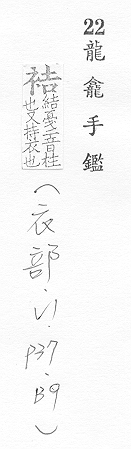 22龍龕手鑑
袺結戛二音桂
也又持衣也
（衣部．V1．P37．B9）